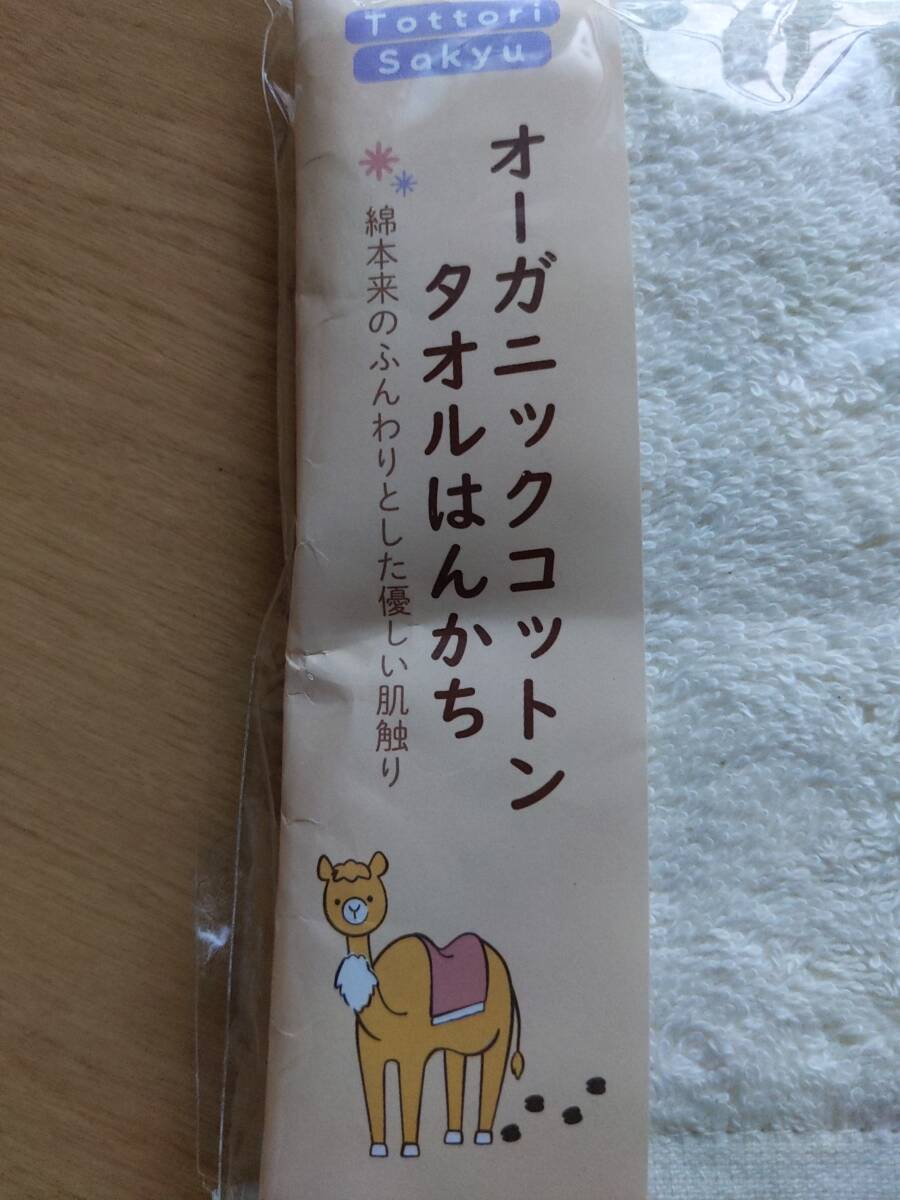 Tottori
Sakyu
オーガニックコットン
タオルはんかち
綿本来のふんわりとした優しい肌触り